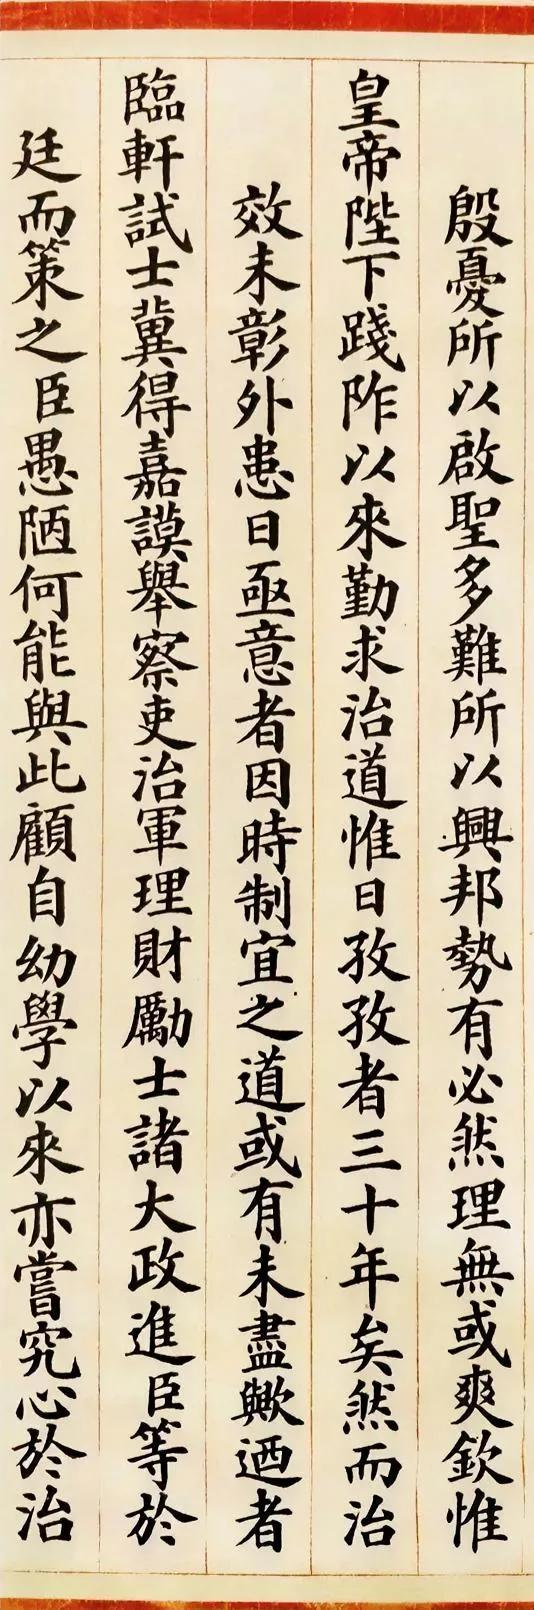 殷憂所以啟聖多難所以興邦勢有必然理無或爽欽惟
皇帝陛下踐阼以來勤求治道惟日孜孜者三十年矣然而治
效未彰外患日亟意者因時制宜之道或有未盡歟迺者
臨軒試士冀得嘉謨舉察吏治軍理財勵士諸大政進臣等於
廷而策之臣愚陋何能與此顧自幼學以來亦嘗究心於治